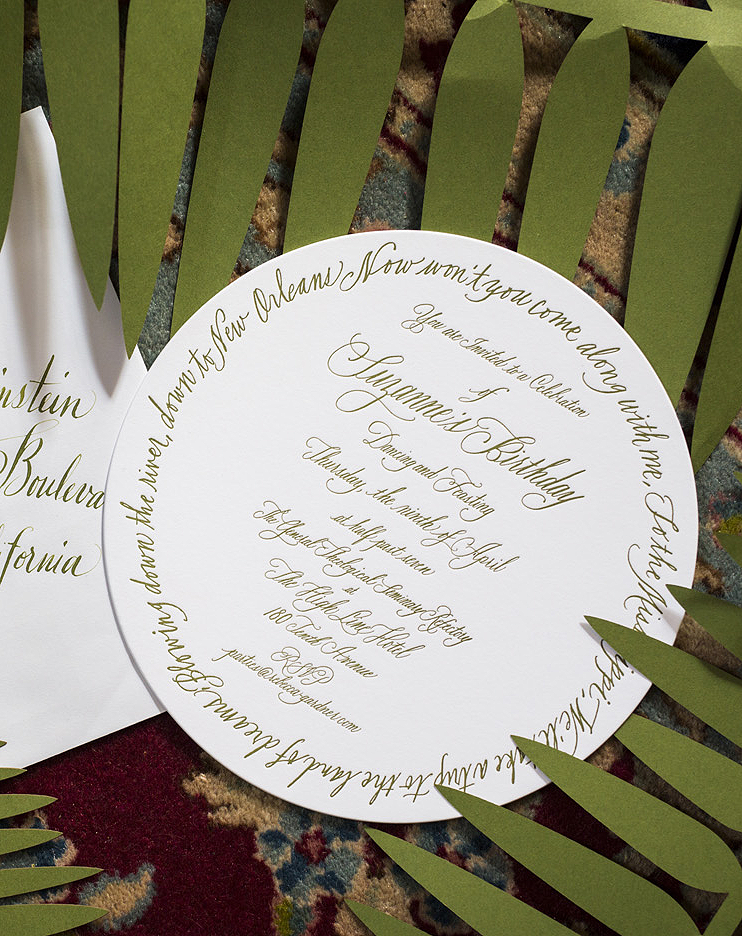 Now won't you come along with me, To the Mis ippi. We'll take a trip to the land of dreams, Blowing down the river, down to New Orleans
You are Invited to a Celebration
of
Suzanne's Birthday
Dancing and Feasting
Thursday, the ninth of April
at half past seven
The General Theological Seminary Refectory
at
The High Line Hotel
180 Tenth Avenue
RSVP
parties@rebecca-gardner.com
nstein
Bouleva
fornia